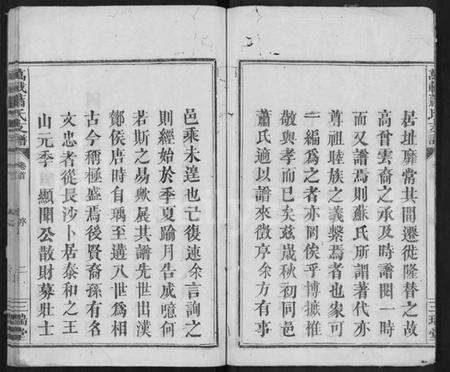 居址靡常其間遷徙隆替之故
高曾雲耆之承及時譜閱一時
而又譜焉則蘇氏所謂著代亦
尊祖睦族之義繫焉者也象可
一編為之者亦罔俟乎博摭惟
教與孝而已矣茲歲秋初同邑
蕭氏適以譜來徵序余方有事
邑乘未遑也亡復速余言詢之
則經始於季夏踰月告成噫何
若斯之易歟展其譜先世出漢
酇侯唐時自瑀至遘八世為相
古今稱極盛焉後賢裔孫有名
文忠者從長沙卜居泰和之王
山元季 顯開公散財募壯士
萬載蕭氏支譜
卷首
序